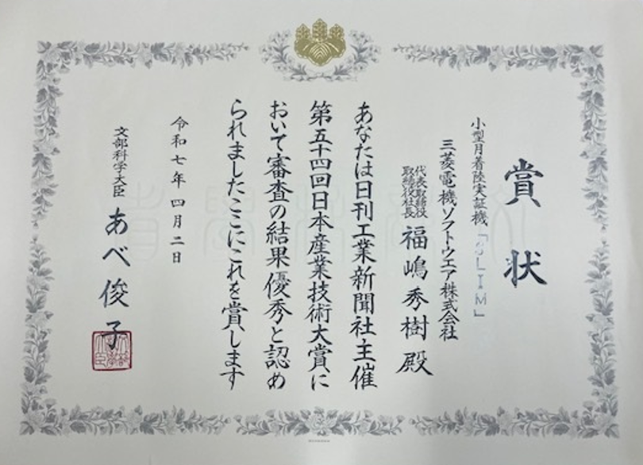 賞状
小型月着陸実証機「SLIM」
三菱電機ソフトウエア株式会社
代表取締役
取締役社長
福嶋秀樹殿
あなたは日刊工業新聞社主催
第五十四回日本産業技術大賞に
おいて審査の結果優秀と認め
られましたここにこれを賞します
令和七年四月二日
文部科学大臣 あべ俊子